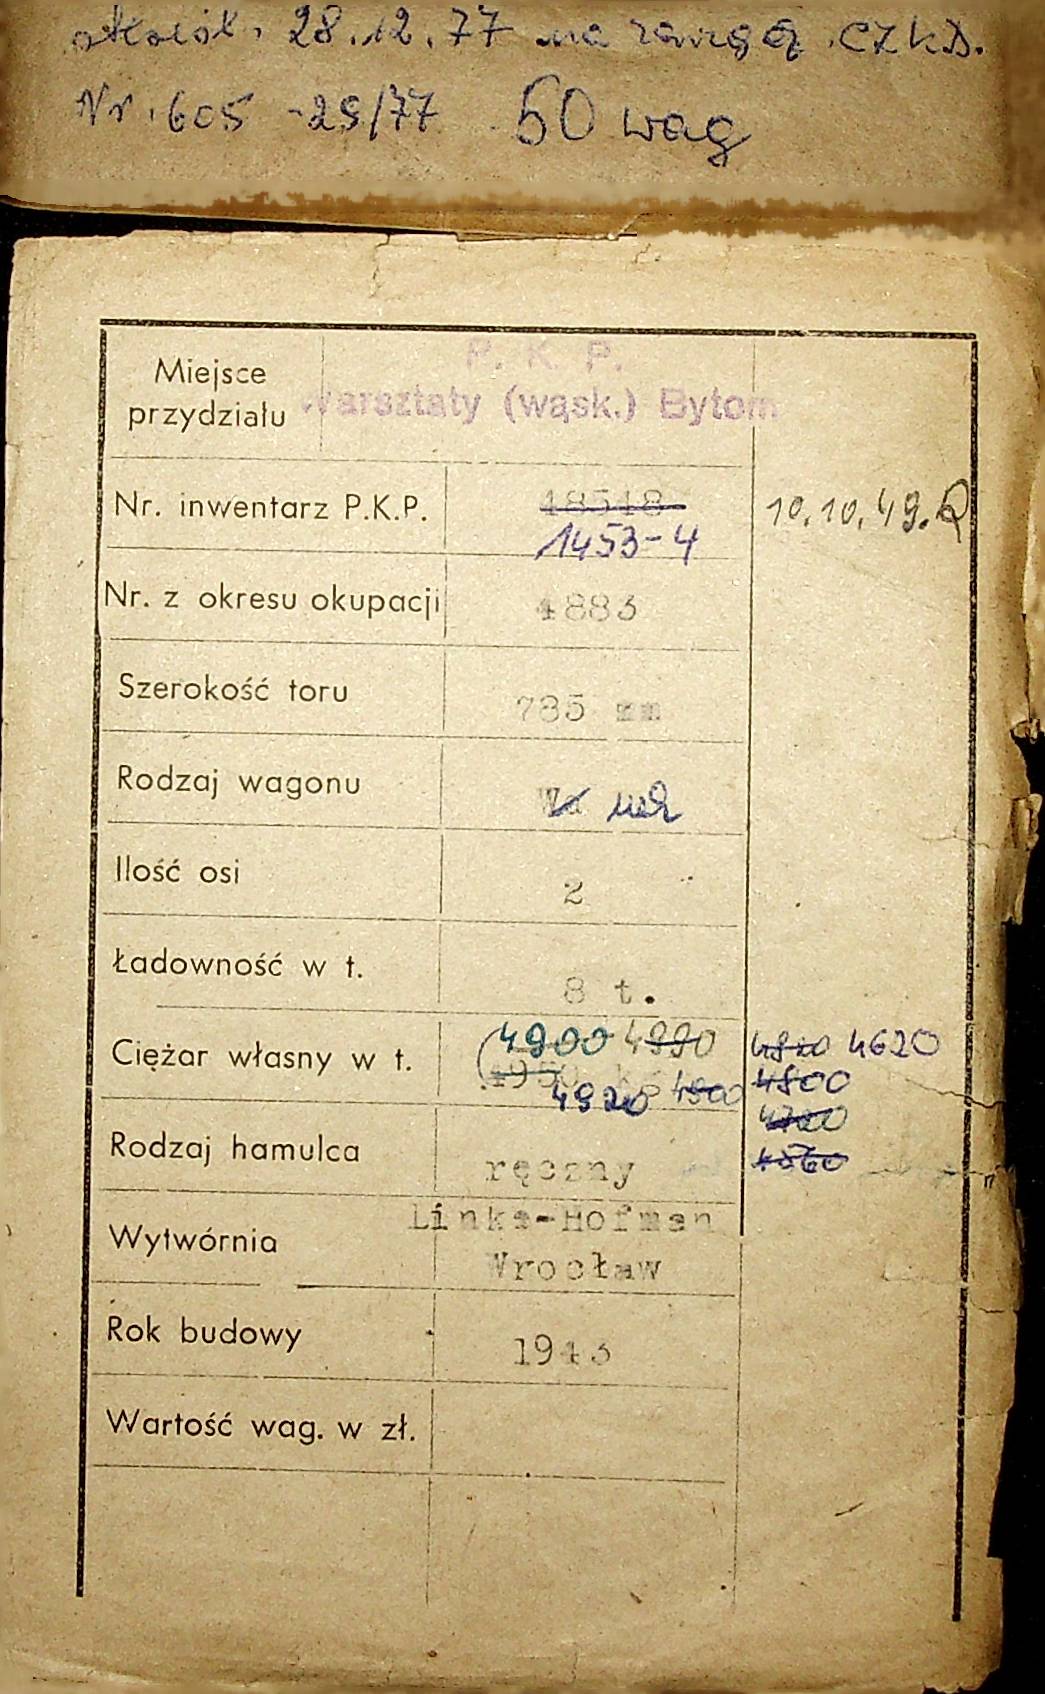 28.12.77 na CZKD.
Nr. 605 -29/77 50 wag
P. K. P.
Miejsce przydziału Warsztaty (wąsk.) Bytom
Nr. inwentarz P.K.P. 18548 10.10.49.
1453-4
Nr. z okresu okupacji 4883
Szerokość toru 785 mm
Rodzaj wagonu Wa
Ilość osi 2
Ładowność w t. 8 t.
Ciężar własny w t. 4900 4990 4820 4620
4950 kg 4800
4920 4900 4700
Rodzaj hamulca ręczny 4560
Wytwórnia Linke-Hofman
Wrocław
Rok budowy 1943
Wartość wag. w zł.